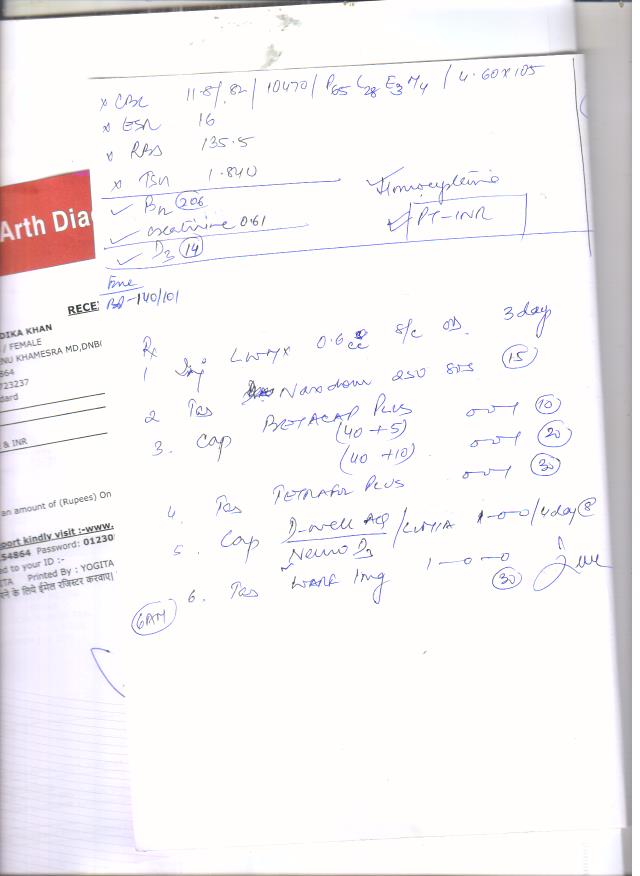 x CBC 11.8/.82/10470/P65 L28 E3 M4 / 4.60x105
x ESR 16
x RBS 135.5
x TSH 1.840
✓ B12 206
✓ creatinine 0.61
✓ D3 14
✓ Homocysteine
✓ PT-INR
BP-140/101
Rx
1 Inj LWMX 0.6cc s/c OD. 3day
2 Tab Naxdom 250 SOS 15
3. Cap BETACAP PLUS
(40+5) o-o-1 10
(40+10) o-o-1 20
4. Tab TETRAFOL PLUS o-o-1 30
5. Cap D-well AQ / 1-o-o/4day 8
Neuro D3
6. Tab WARF 1mg 1-o-o 30
6AM
Arth Dia
RECE
DIKA KHAN
/ FEMALE
NU KHAMESRA MD,DNB(
864
723237
dard
& INR
an amount of (Rupees) On
port kindly visit :-www.
54864 Password: 01230
ed to your ID :-
ITA Printed By : YOGITA
ने के लिये ईमेल रजिस्टर करवाए।